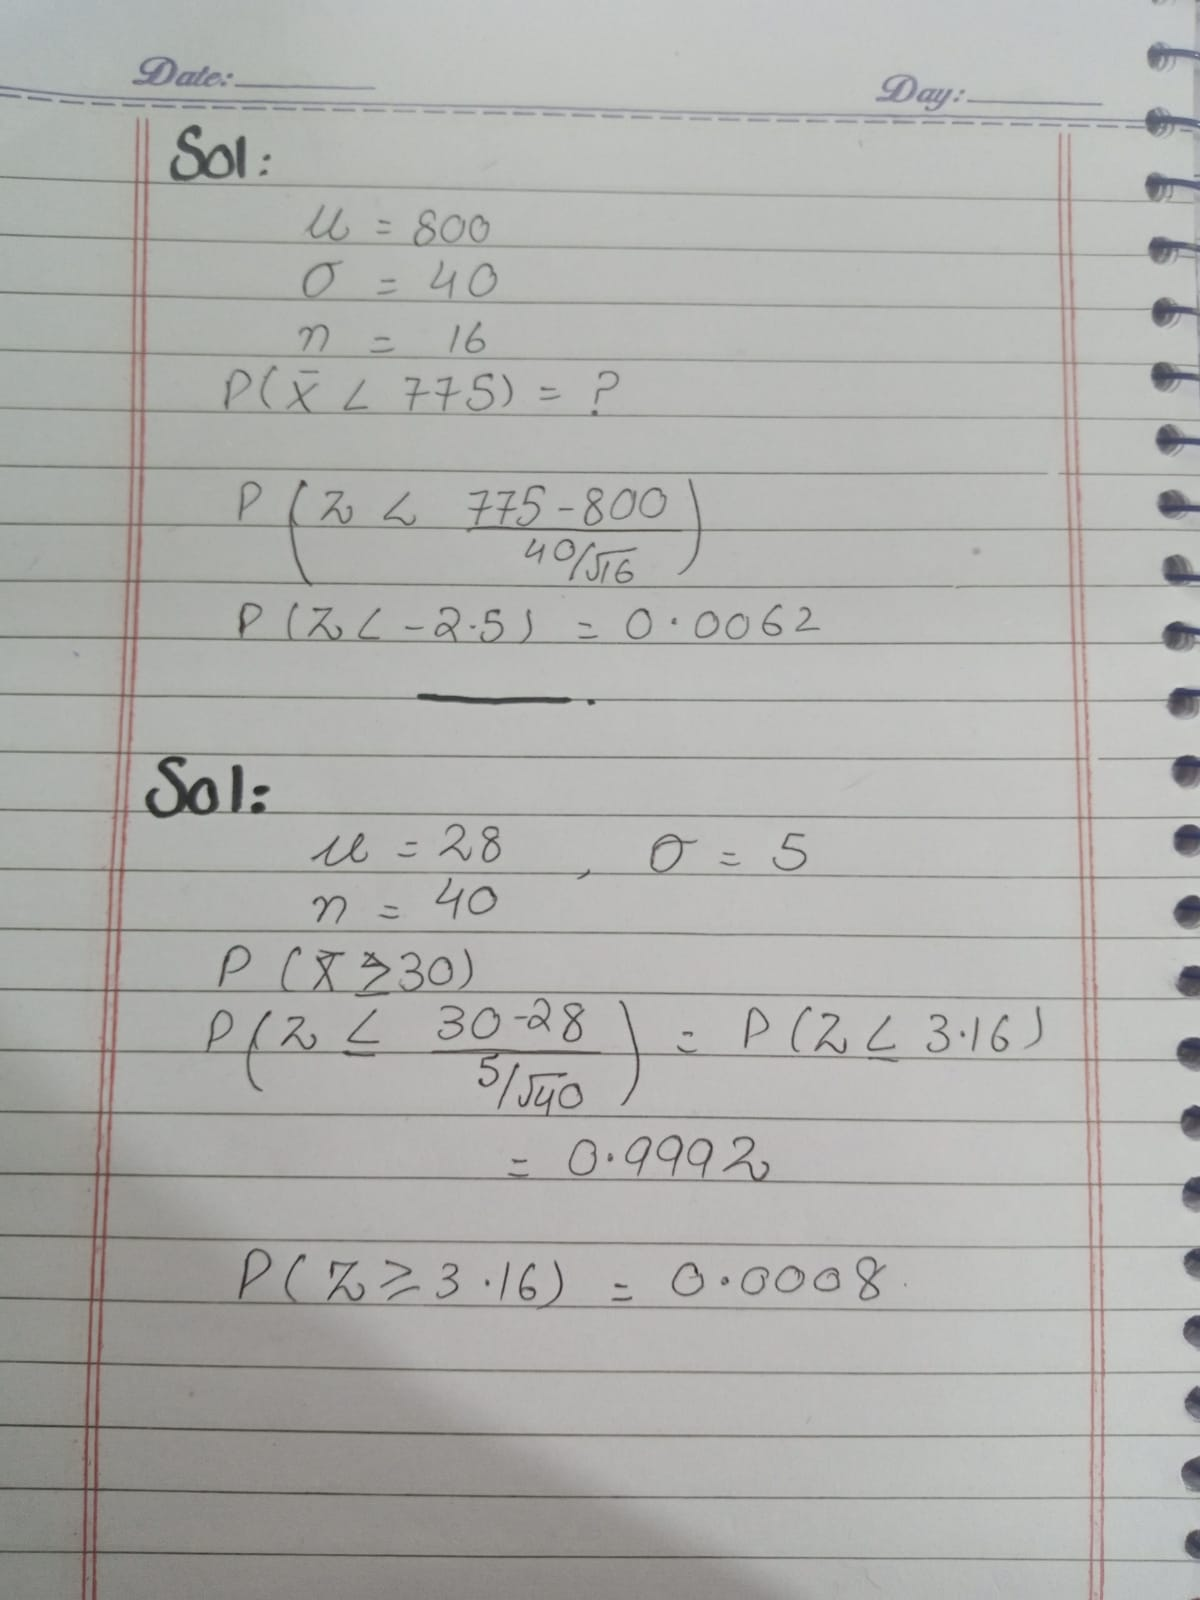 Date: Day:
Sol:
μ = 800
σ = 40
n = 16
P(x̄ < 775) = ?
P(Z < 775-800
40/√16)
P(Z < -2.5) = 0.0062
Sol:
μ = 28 , σ = 5
n = 40
P(x̄ ≥ 30)
P(Z ≤ 30-28
5/√40) = P(Z ≤ 3.16)
= 0.9992
P(Z ≥ 3.16) = 0.0008.